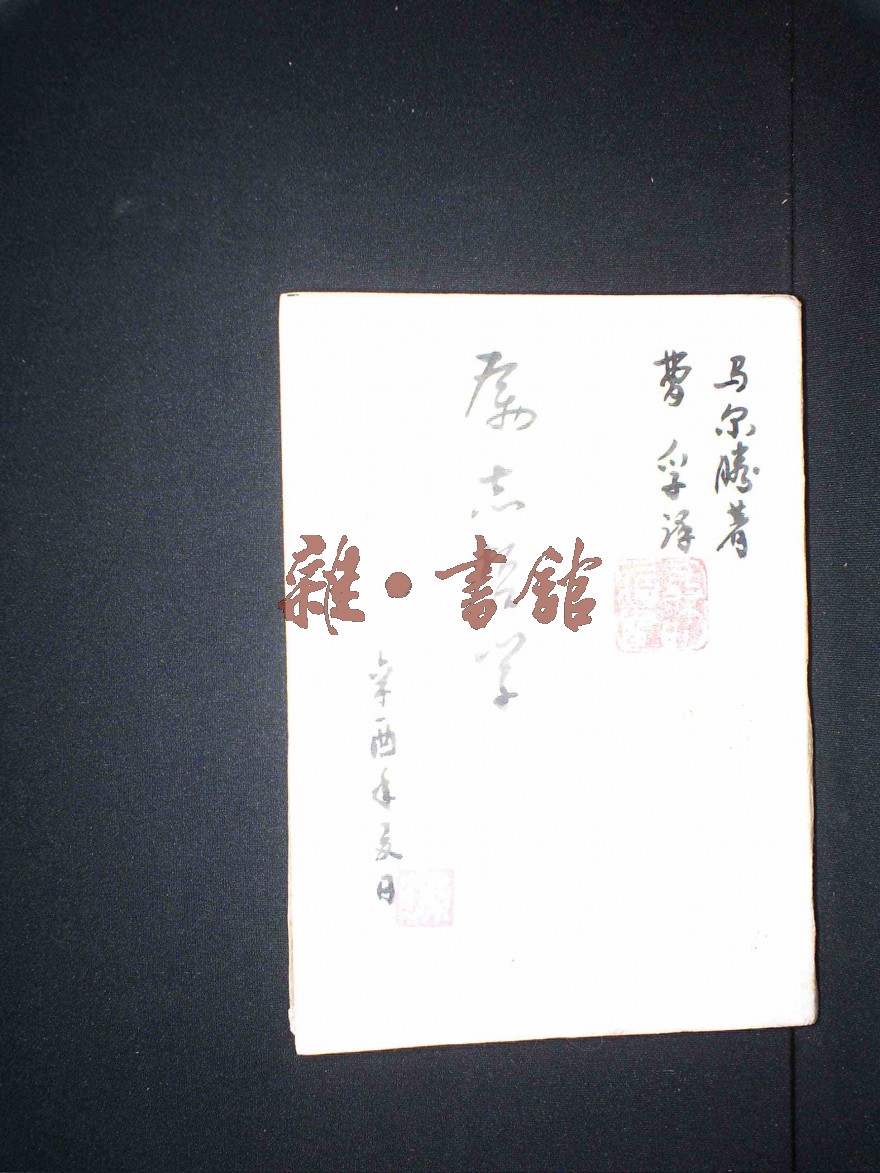 马尔腾著
曹孚译
励志哲学
辛酉年夏日
雜·書館